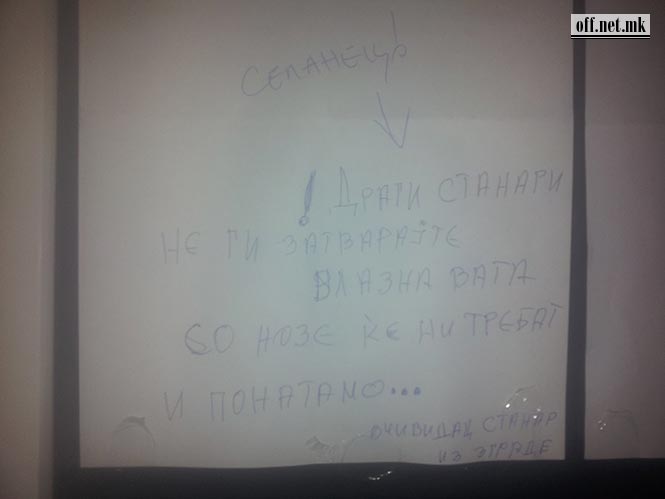 off.net.mk
СЕЛАНЕЦ!
! ДРАГИ СТАНАРИ
НЕ ГИ ЗАТВАРАЈТЕ
ВЛАЗНА ВАТА
СО НОЗЕ ЌЕ НИ ТРЕБАТ
И ПОНАТАМО...
ОЧИВИДАЦ СТАНАР
ИЗ ЗГРАДЕ